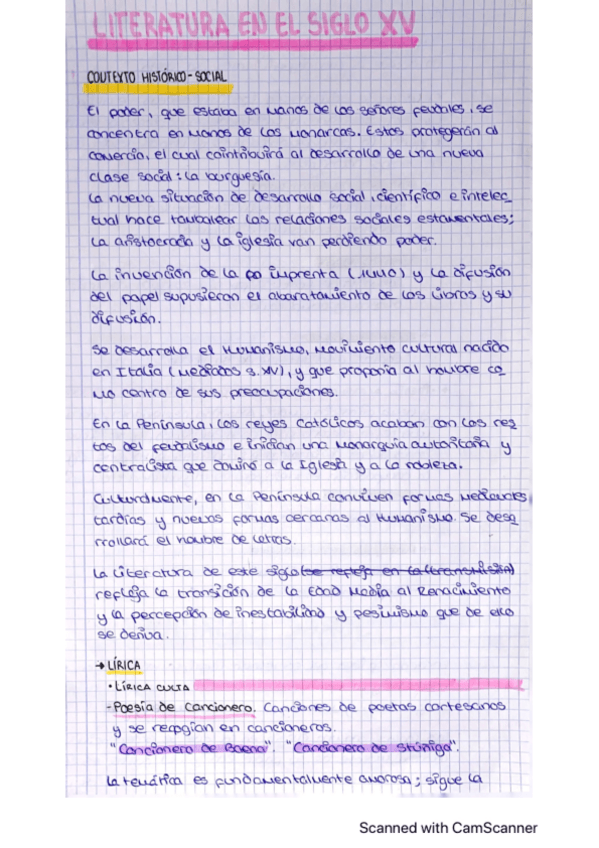 LITERATURA EN EL SIGLO XV
CONTEXTO HISTÓRICO-SOCIAL
El poder, que estaba en manos de los señores feudales, se
concentra en manos de los monarcas. Estos protegerán al
comercio, el cual cointribuirá al desarrollo de una nueva
clase social: la burguesía.
La nueva situación de desarrollo social, científico e intelec
tual hace tambalear las relaciones sociales estamentales;
la aristocracia y la iglesia van perdiendo poder.
La invención de la imprenta (1440) y la difusión
del papel supusieron el abaratamiento de los libros y su
difusión.
Se desarrolla el Humanismo, movimiento cultural nacido
en Italia (mediados s. XV), y que proponía al hombre co
mo centro de sus preocupaciones.
En la Península, los reyes Católicos acaban con los res
tos del feudalismo e inician una monarquía autoritaria y
centralista que a la Iglesia y a la nobleza.
Culturalmente, en la Península conviven formas medievales
tardías y nuevas formas cercanas al Humanismo. Se desa
rrollará el hombre de letras.
La literatura de este siglo (se refleja en la transmisión)
refleja la transición de la Edad Media al Renacimiento
y la percepción de inestabilidad y pesimismo que de ello
se deriva.
→ LÍRICA
• LÍRICA CULTA
- Poesía de Cancionero. Canciones de poetas cortesanos
y se recogían en cancioneros.
"Cancionero de Baena". "Cancionero de Stúñiga".
La temática es fundamentalmente amorosa; sigue la
Scanned with CamScanner